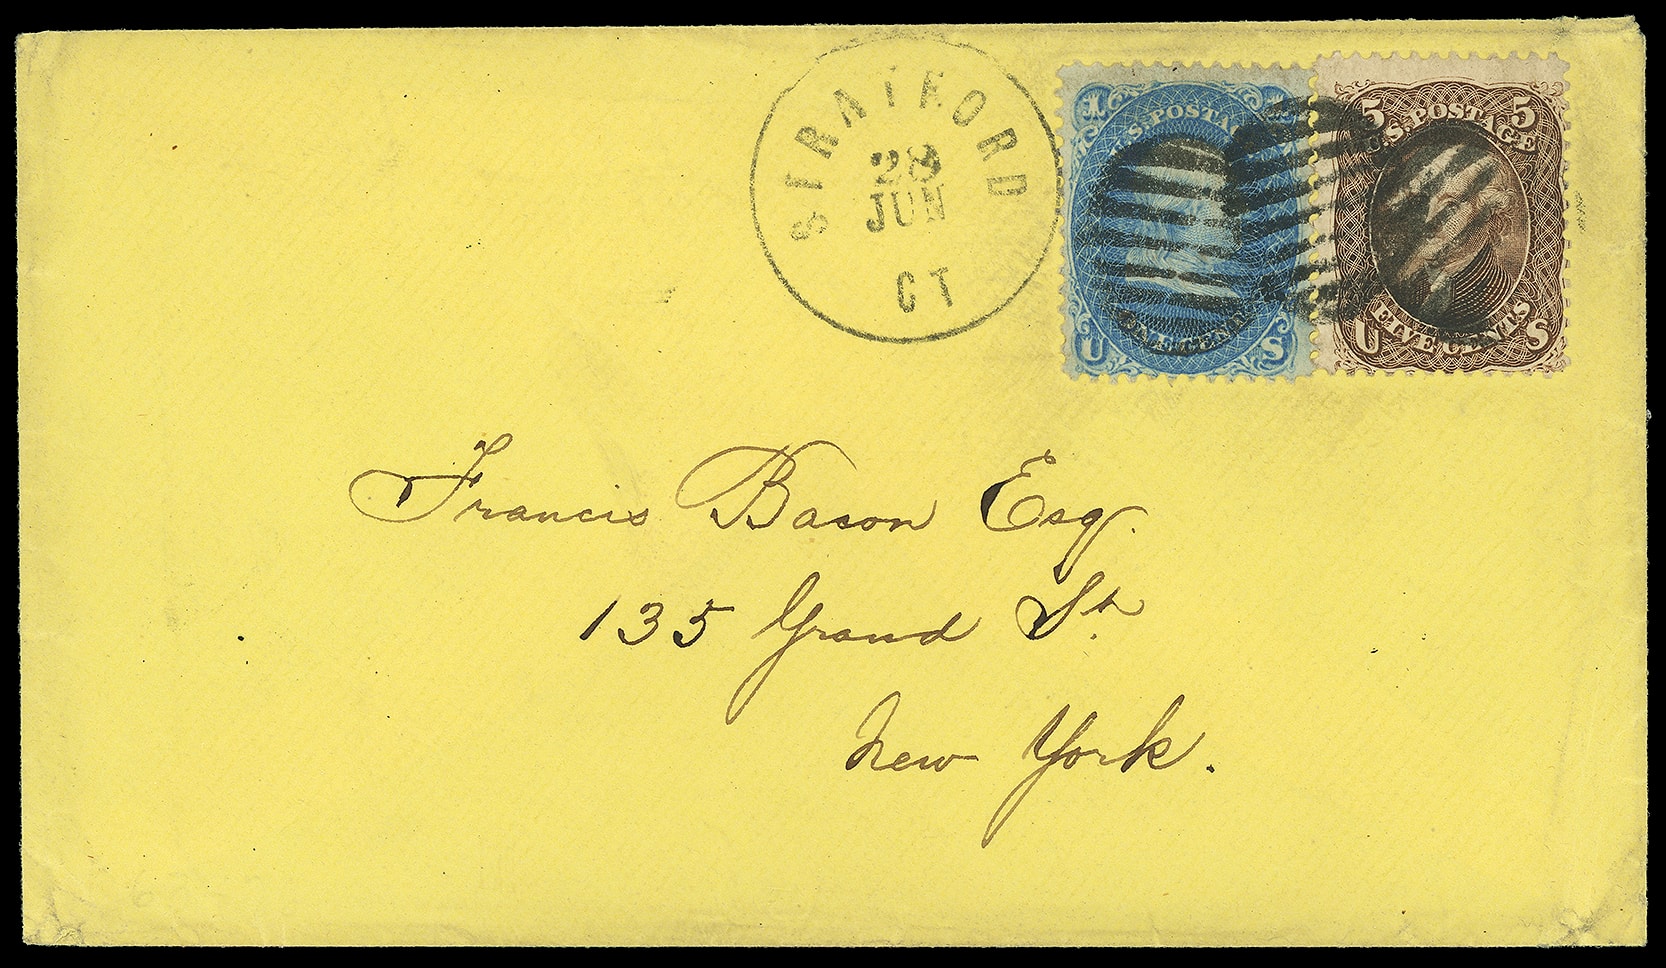 STRATFORD
28
JUN
CT
1 1
U.S. POSTAGE
ONE CENT
U S
5 5
U.S. POSTAGE
FIVE CENTS
U S
Francis Bacon Esq.
135 Grand St.
New York.